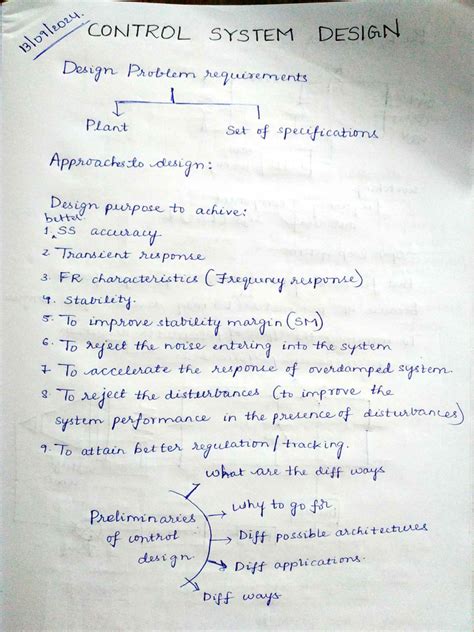 13/09/2024.
CONTROL SYSTEM DESIGN
Design Problem requirements
Plant
Set of specifications
Approaches to design:
Design purpose to achive:
better
1. SS accuracy
2. Transient response
3. FR characteristics (Frequency response)
4. Stability.
5. To improve stability margin (SM)
6. To reject the noise entering into the system
7. To accelerate the response of overdamped system.
8. To reject the disturbances (to improve the
system performance in the presence of disturbances)
9. To attain better regulation/tracking.
What are the diff ways
Why to go for
Preliminaries
of control
design.
Diff possible architectures
Diff applications.
Diff ways